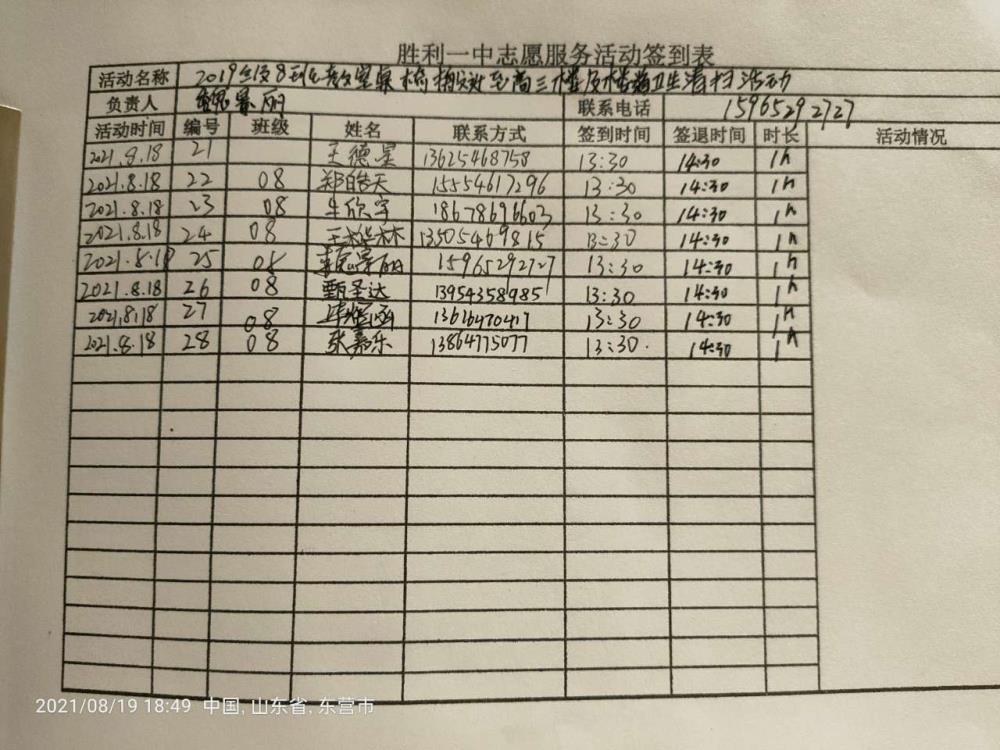 胜利一中志愿服务活动签到表
活动名称 2019级8班 教室桌椅搬运至高三楼及楼道卫生清扫活动
负责人 丽 联系电话 15965292727
活动时间 编号 班级 姓名 联系方式 签到时间 签退时间 时长 活动情况
2021.8.18 21 王德星 13625468758 13:30 14:30 1h
2021.8.18 22 08 郑皓天 15554617296 13:30 14:30 1h
2021.8.18 23 08 牟欣宇 18678696603 13:30 14:30 1h
2021.8.18 24 08 王 林 13505469815 13:30 14:30 1h
2021.8.18 25 08 丽 15965292727 13:30 14:30 1h
2021.8.18 26 08 甄圣达 13954358985 13:30 14:30 1h
2021.8.18 27 08 涵 13616470417 13:30 14:30 1h
2021.8.18 28 08 张嘉乐 13864775077 13:30. 14:30 1h
2021/08/19 18:49 中国, 山东省, 东营市